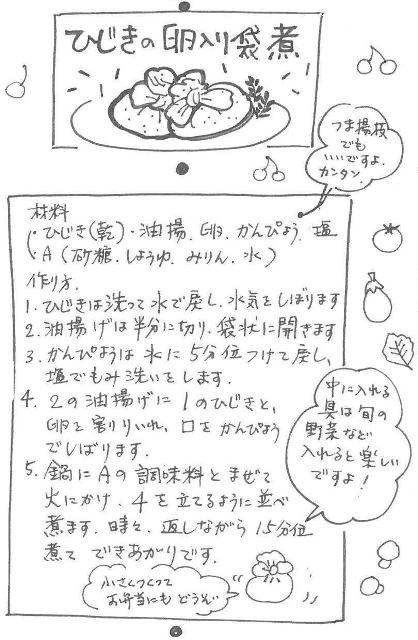 ひじきの卵入り袋煮
つま揚枝
でも
いいですよ.
カンタン.
材料
・ひじき(乾)・油揚.卵.かんぴょう.塩
・A(砂糖.しょうゆ.みりん.水)
作り方.
1.ひじきは洗って水で戻し.水気をしぼります
2.油揚げは半分に切り.袋状に開きます
3.かんぴょうは水に5分位つけて戻し.
塩でもみ洗いをします.
4.2の油揚げに1のひじきと.
卵を割りいれ.口をかんぴょう
でしばります.
5.鍋にAの調味料とまぜて
火にかけ.4を立てるように並べ
煮ます.時々.返しながら15分位
煮てできあがりです.
中に入れる
具は旬の
野菜など
入れると楽しい
ですよ!
小さくつくって
お弁当にもどうぞ